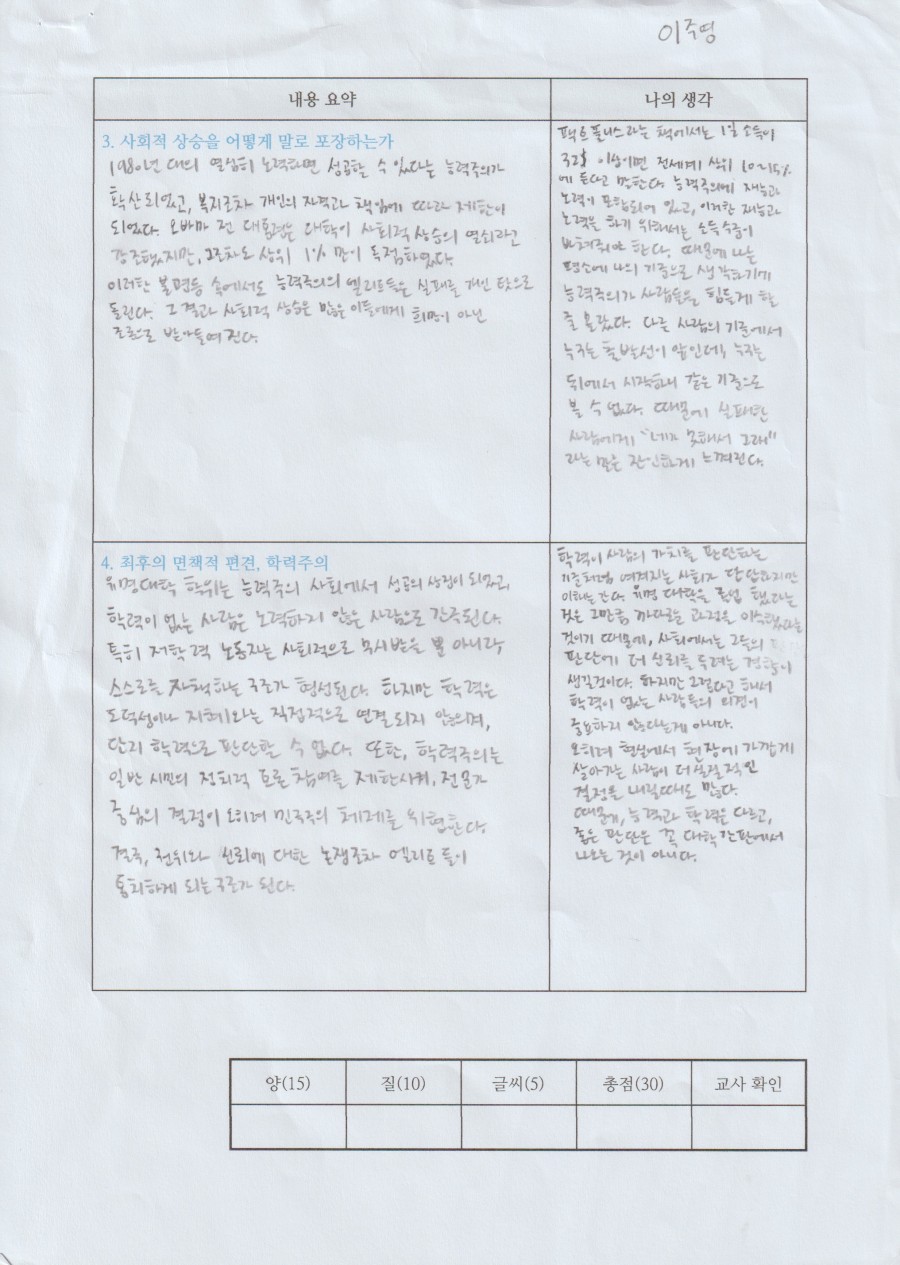 이주영
내용 요약
나의 생각
3. 사회적 상승을 어떻게 말로 포장하는가
1980년 대의 열심히 노력하면 성공할 수 있다는 능력주의가
확산 되었고, 복지조차 개인의 자격과 책임에 따라 제한이
되었다. 오바마 전 대통령은 대학이 사회적 상승의 열쇠라고
강조했지만, 그조차도 상위 1%만이 독점하였다.
이러한 불평등 속에서도 능력주의의 엘리트들은 실패를 개인 탓으로
돌린다. 그 결과 사회적 상승은 많은 이들에게 희망이 아닌
조롱으로 받아들여 진다.
팩트풀니스라는 책에서는 1일 소득이
32$ 이상이면 전세계 상위 10~15%
에 든다고 말한다. 능력주의에 재능과
노력이 포함되어 있고, 이러한 재능과
노력을 하기 위해서는 소득수준이
받쳐줘야 한다. 때문에 나는
평소에 나의 기준으로 생각하기에
능력주의가 사람들을 힘들게 할
줄 몰랐다. 다른 사람의 기준에서
누구는 출발선이 앞인데, 누구는
뒤에서 시작하니 같은 기준으로
볼 수 없다. 때문에 실패한
사람에게 "네가 못해서 그래"
라는 말은 잔인하게 느껴진다.
4. 최후의 면책적 편견, 학력주의
유명대학 학위는 능력주의 사회에서 성공의 상징이 되었고,
학력이 없는 사람은 노력하지 않은 사람으로 간주된다.
특히 저학력 노동자는 사회적으로 무시받을 뿐 아니라
스스로를 자책하는 구조가 형성된다. 하지만 학력은
도덕성이나 지혜와는 직접적으로 연결 되지 않으며,
단지 학력으로 판단할 수 없다. 또한, 학력주의는
일반 시민의 정치적 토론 참여를 제한시켜, 전문가
중심의 결정이 오히려 민주주의 체제를 위협한다.
결국, 전위와 신뢰에 대한 논쟁조차 엘리트 들이
통치하게 되는 구조가 된다.
학력이 사람의 가치를 판단하는
기준처럼 여겨지는 사회가 단단하지만
이해는 간다. 유명 대학을 졸업 했다는
것은 그만큼 까다로운 과정을 이수했다는
것이기 때문에, 사회에서는 그들의
판단에 더 신뢰를 두려는 경향이
생길것이다. 하지만 그렇다고 해서
학력이 없는 사람들의 의견이
중요하지 않다는게 아니다.
오히려 현실에서 현장에 가깝게
살아가는 사람이 더 실질적인
결정을 내릴때도 많다.
때문에, 능력과 학력은 다르고,
좋은 판단은 꼭 대학 간판에서
나오는 것이 아니다.
양(15)
질(10)
글씨(5)
총점(30)
교사 확인